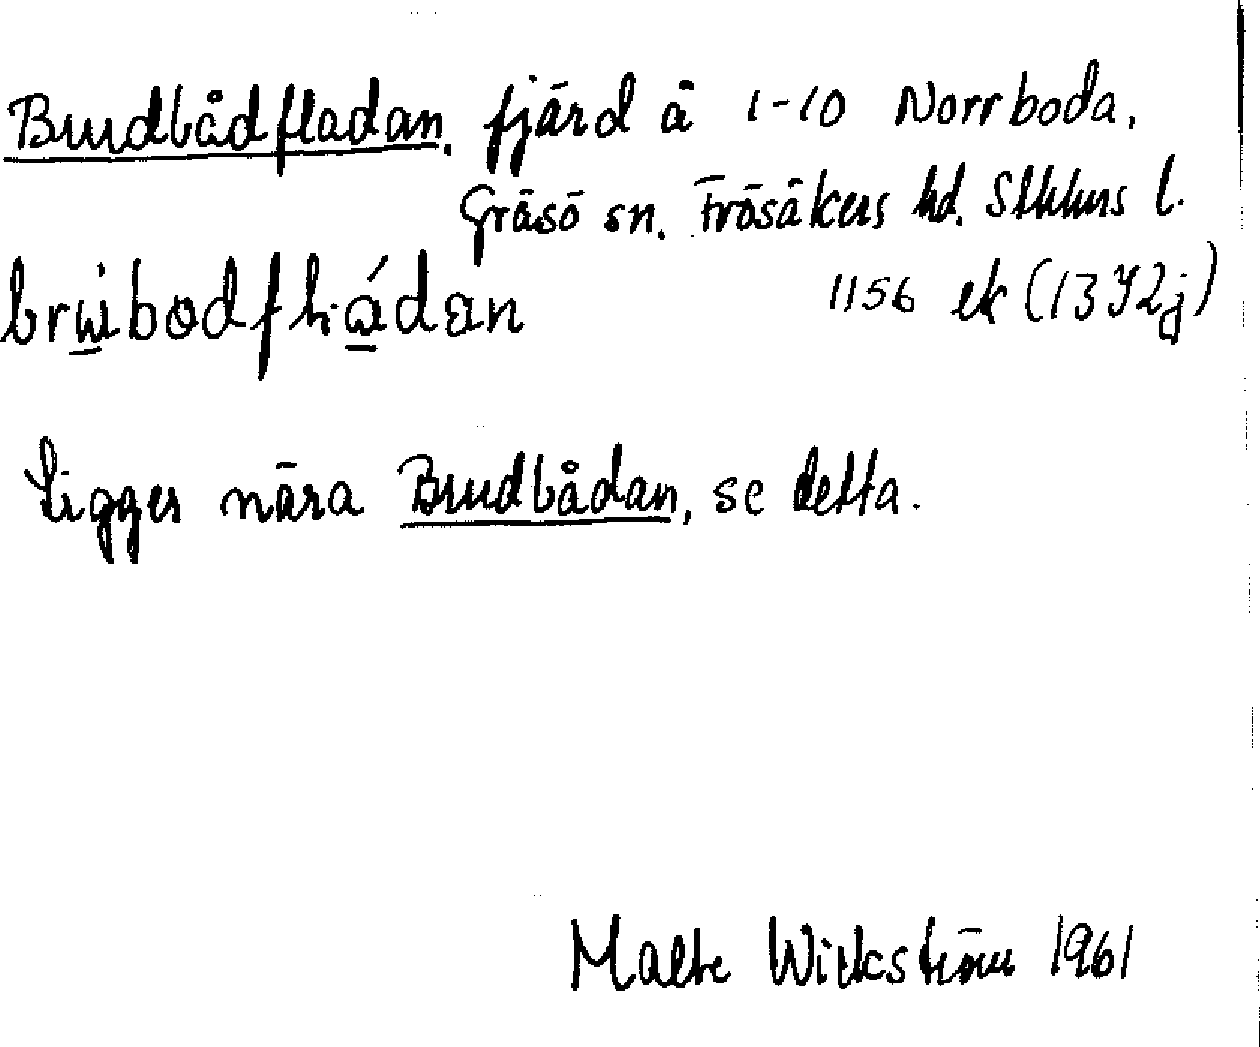 Brudbådfladan, fjärd å 1-10 Norrboda,
Gräsö sn. Frösåkers hd. Sthlms l.
1156 ek (13 I 2j)
Ligger nära Brudbådan, se detta.
Malte Wickström 1961